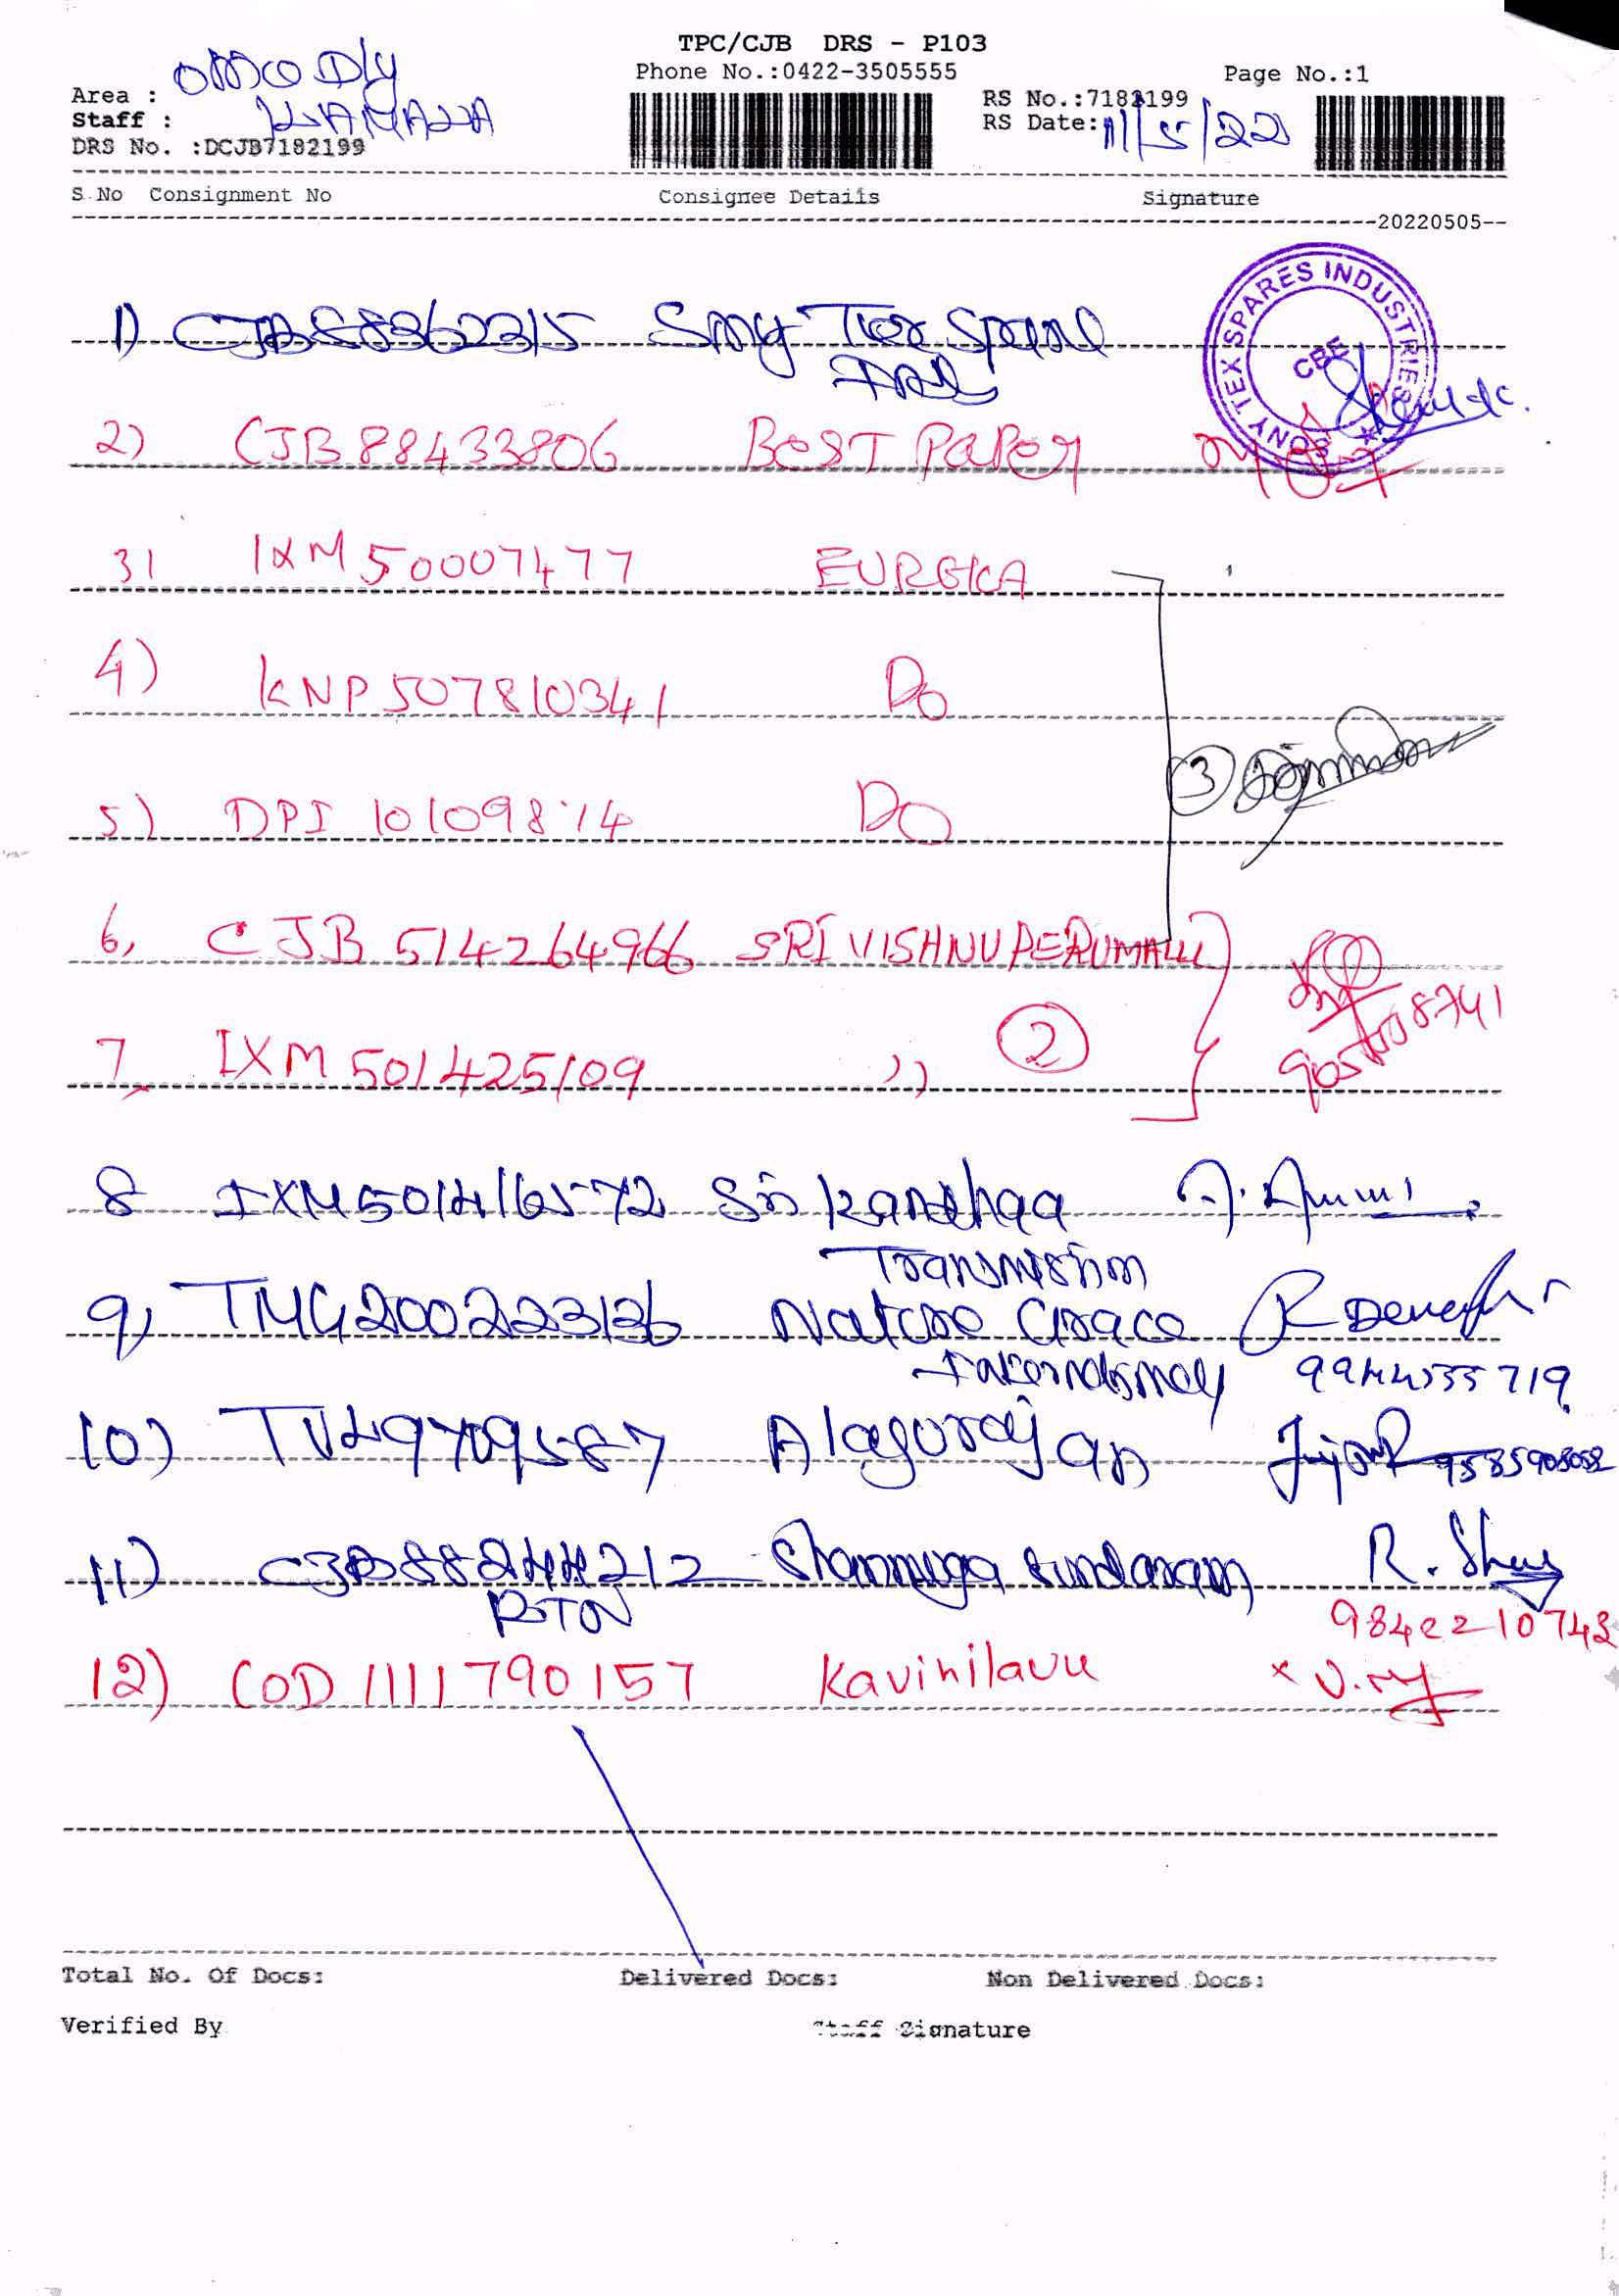 TPC/CJB DRS - P103
Phone No.:0422-3505555
Page No.:1
Area : Dly
Staff : KAMALA
DRS No. :DCJB7182199
RS No.:7182199
RS Date: 11/5/22
S.No Consignment No Consignee Details Signature
20220505
SONY TEX SPARES INDUSTRIES
CBE
1) CJB88362315 Sony Tex Spares
2) CJB88433806 BEST PaPer
3) IXM50007477 EUREKA
4) KNP507810341 Do
5) DPI 10109814 Do
3
6, CJB 514264966 SRI VISHNU PERUMALL
7, IXM 501425109 ,, 2
8 IXM501416572 Sri kandhaa
Transmission
9) TMG200223136 Nature Grace
International
10) TVL9709587 Alagurajan
9585908058
11) CJB88244212 Shanmuga sundaram R.
RTO
9842210743
12) COD 1111790157 Kavinilavu
Total No. Of Docs: Delivered Docs: Non Delivered Docs:
Verified By Staff Signature